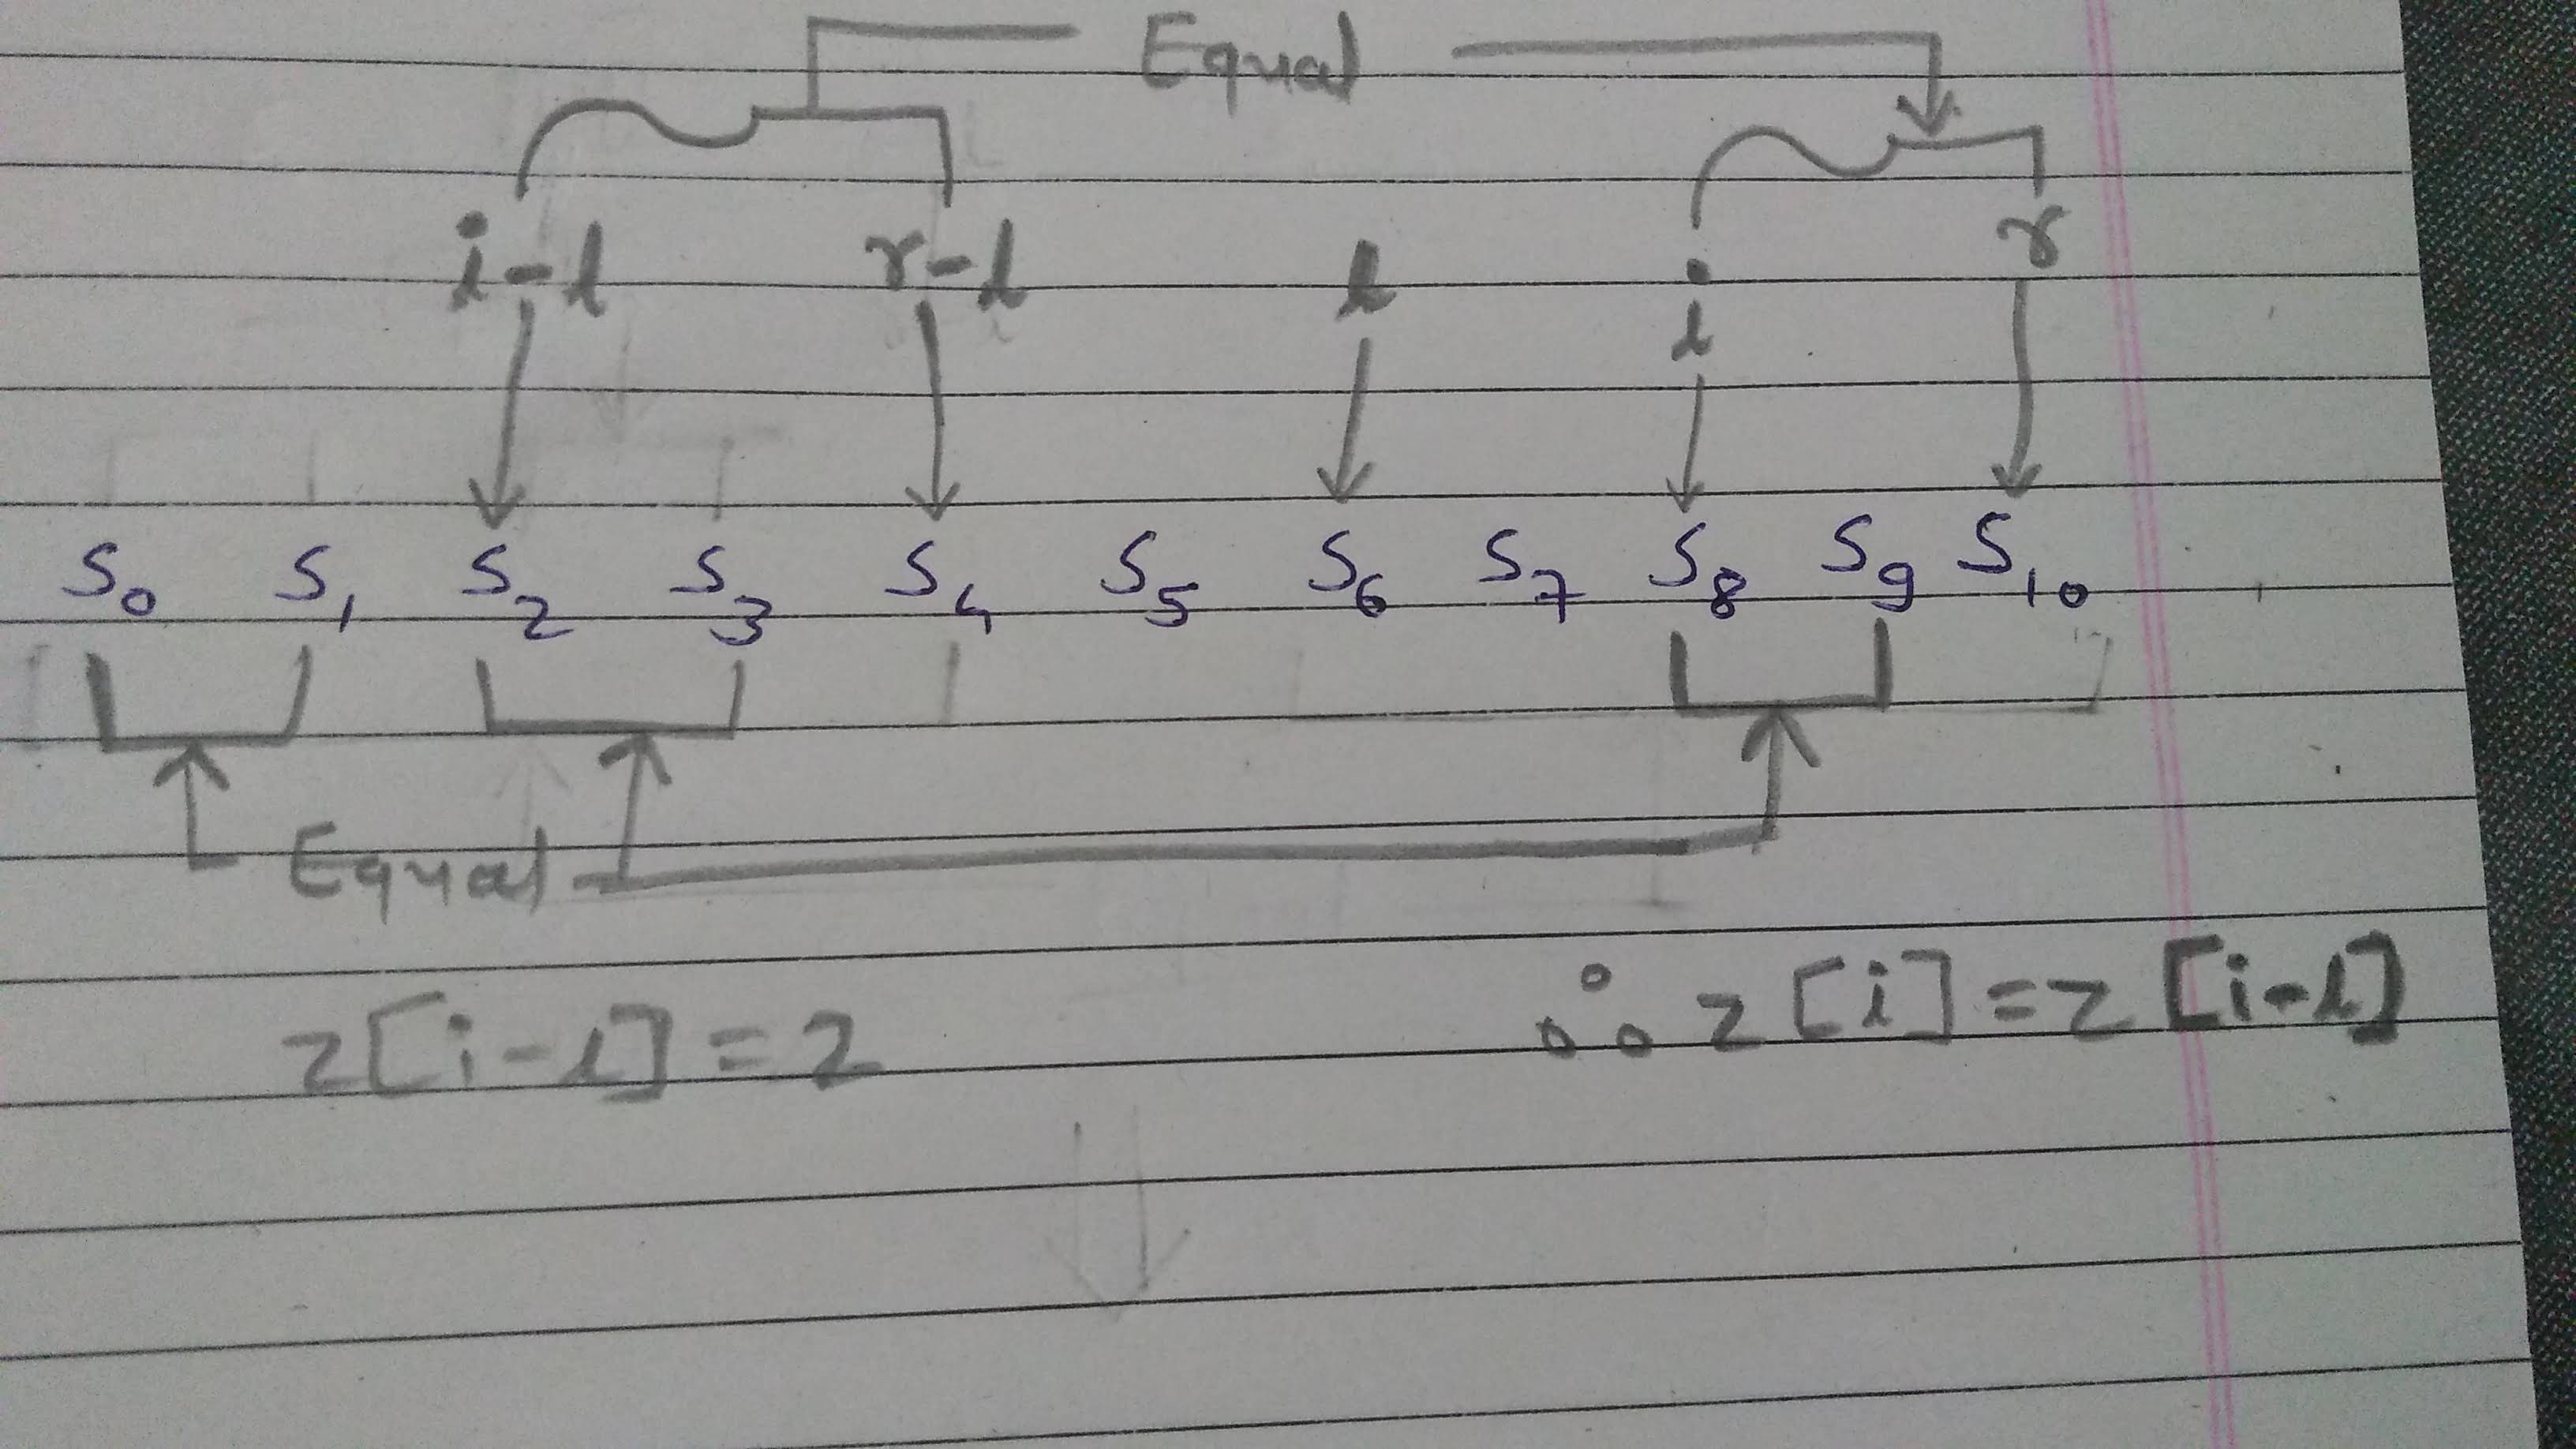 Equal
i-l r-l l i r
S0 S1 S2 S3 S4 S5 S6 S7 S8 S9 S10
Equal
z[i-l]=2 ∴ z[i]=z[i-l]